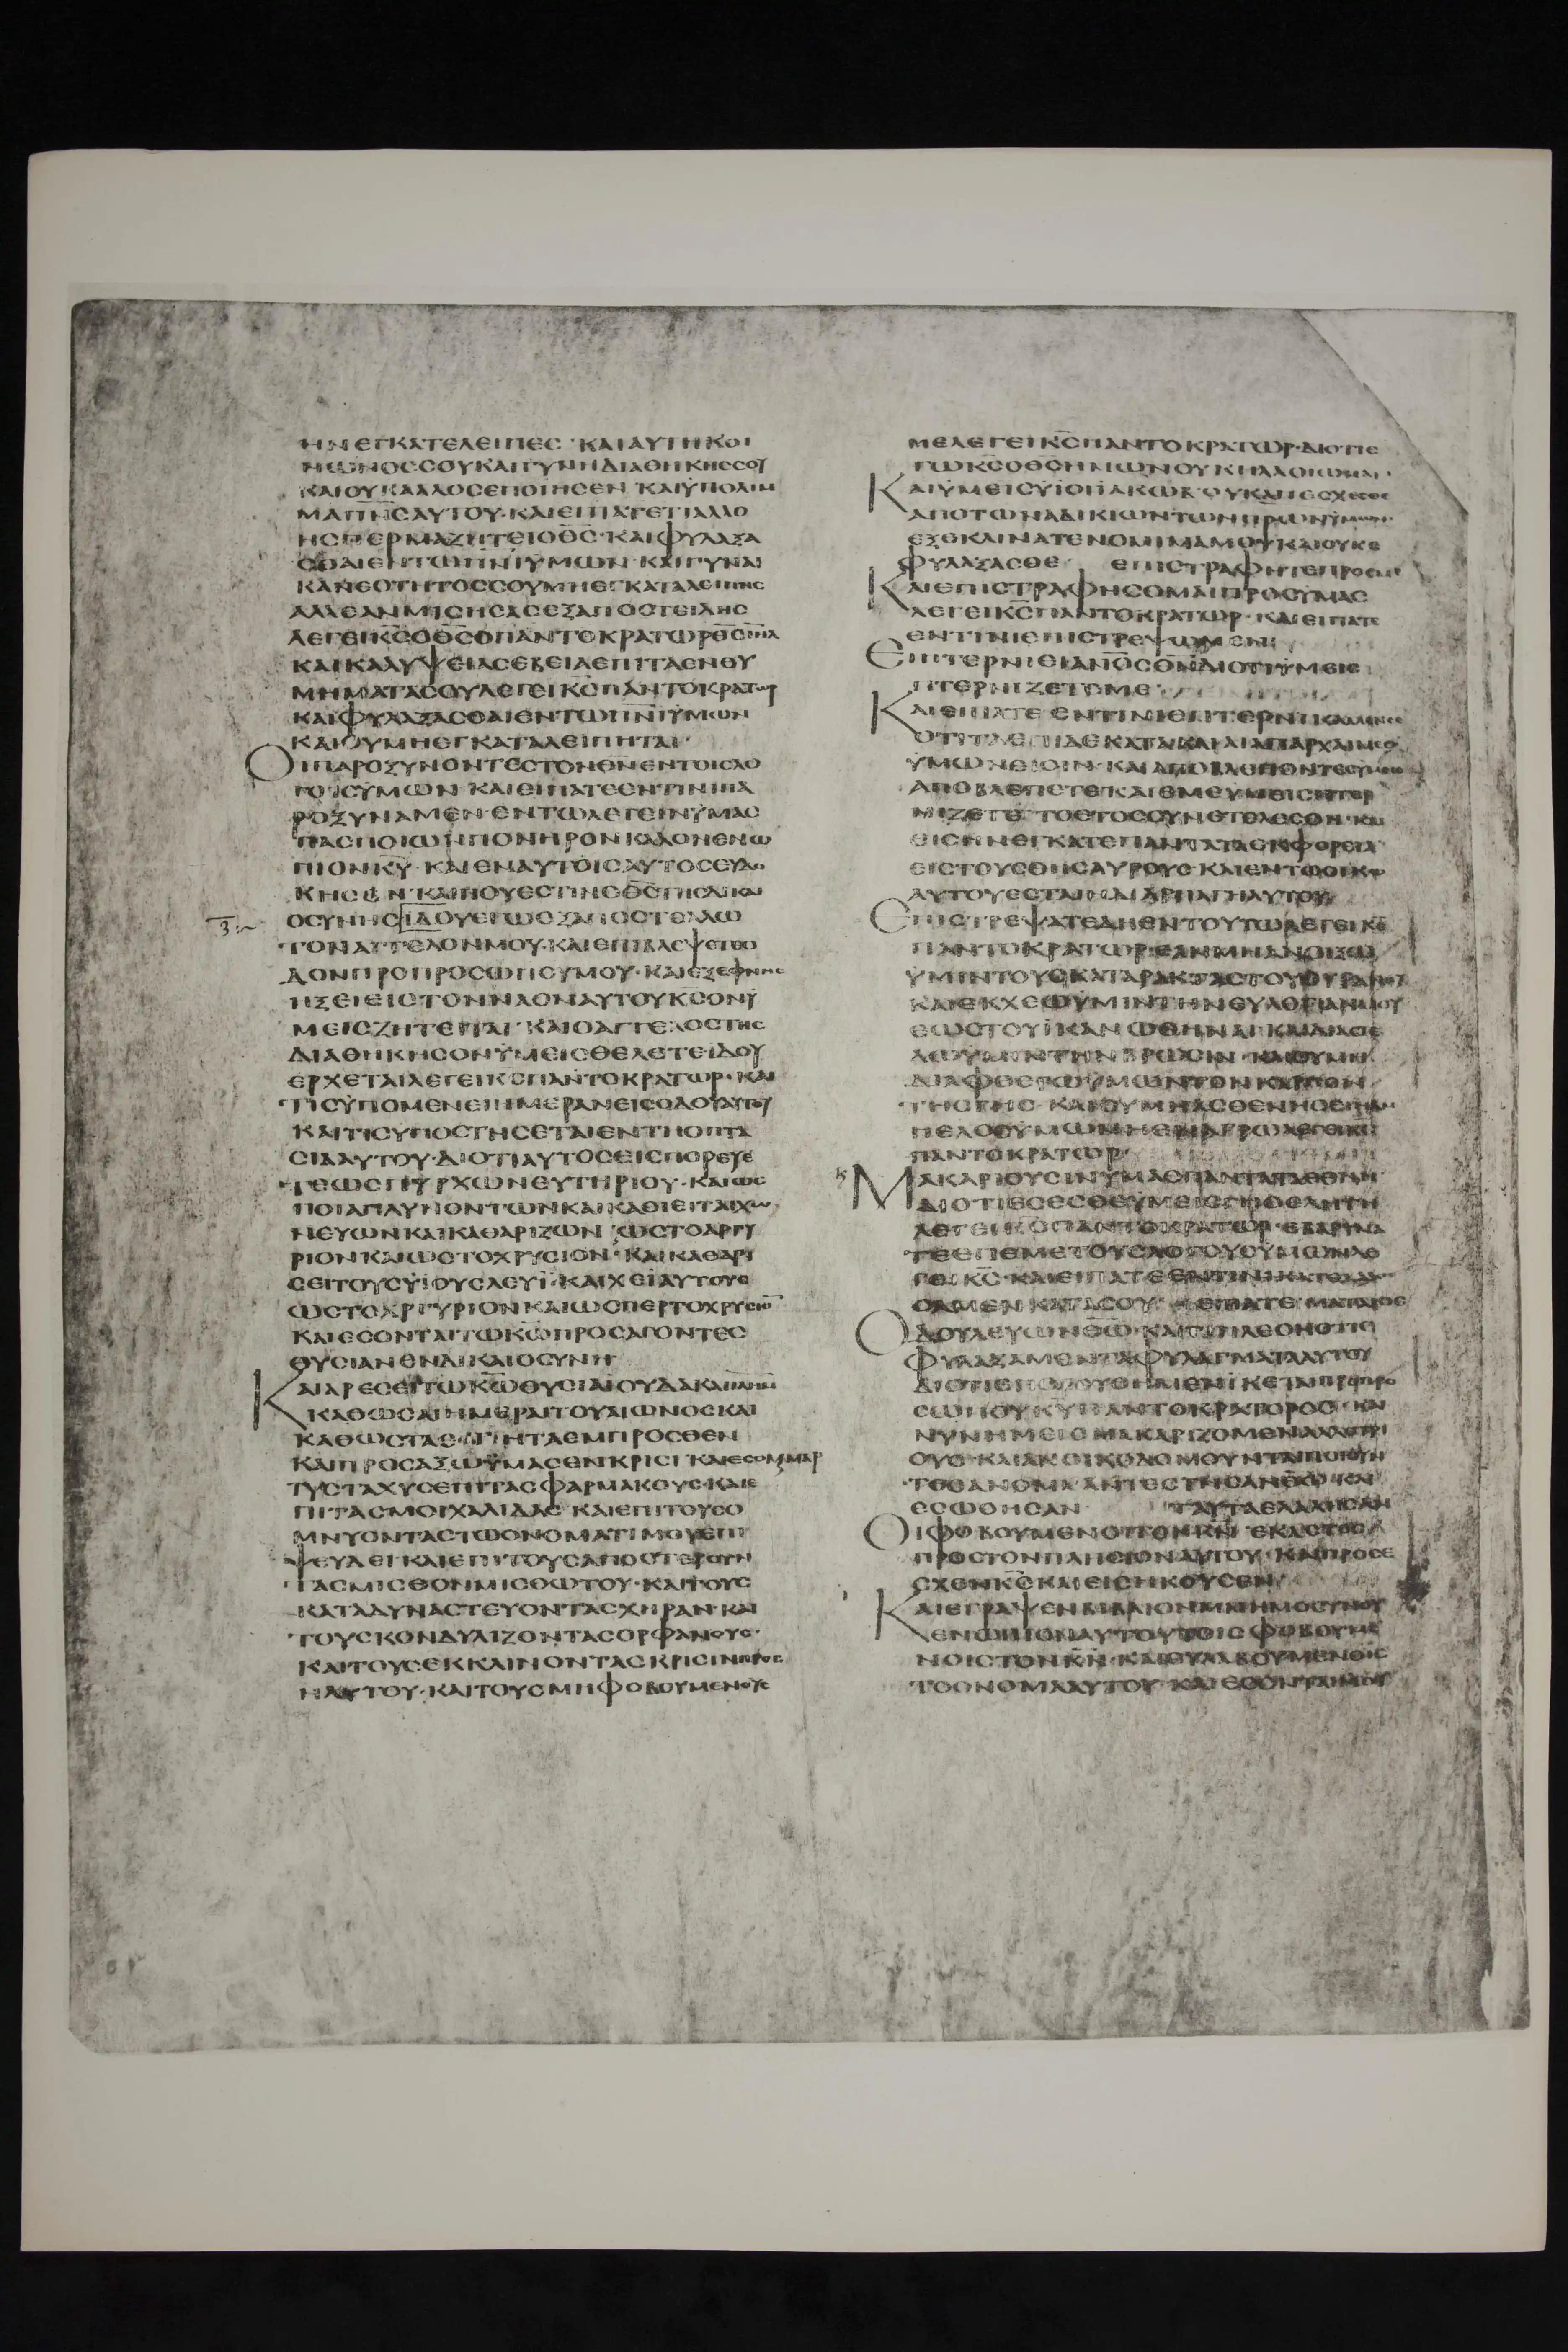 ΗΝΕΓΚΑΤΕΛΕΙΠΕС · ΚΑΙΑΥΤΗΚΟΙ
ΝΩΝΟССΟΥΚΑΙΓΥΝΗΔΙΑΘΗΚΗССΟΥ
ΚΑΙΟΥΚΑΛΛΟСΕΠΟΙΗСΕΝ ΚΑΙΫΠΟΛΙΜ
ΜΑΠΝ̅С̅ΑΥΤΟΥ·ΚΑΙΕΙΠΑΤΕΤΙΑΛΛΟ
ΗСΠΕΡΜΑΖΗΤΕΙΟΘ̅С̅·ΚΑΙΦΥΛΑΞΑ
СΘΑΙΕΝΤΩΠ̅Ν̅Ι̅ΫΜΩΝ·ΚΑΙΓΥΝΑΙ
ΚΑΝΕΟΤΗΤΟССΟΥΜΗΕΓΚΑΤΑΛΕΙΠΗС
ΑΛΛΕΑΝΜΙСΗСΑСΕΞΑΠΟСΤΕΙΛΗС
ΛΕΓΕΙΚ̅С̅Ο̅Θ̅С̅ΟΠΑΝΤΟΚΡΑΤΩΡ
ΚΑΙΚΑΛΥΨΕΙΑСΕΒΕΙΑΕΠΙΤΑΕΝΘΥ
ΜΗΜΑΤΑСΟΥΛΕΓΕΙΚ̅С̅ΠΑΝΤΟΚΡΑΤΩΡ
ΚΑΙΦΥΛΑΞΑСΘΑΙΕΝΤΩΠ̅Ν̅Ι̅ΫΜΩΝ
ΚΑΙΟΥΜΗΕΓΚΑΤΑΛΕΙΠΗΤΑΙ·
ΟΙΠΑΡΟΞΥΝΟΝΤΕСΤΟΝΘ̅Ν̅ΕΝΤΟΙСΛΟ
ΓΟΙСΫΜΩΝ ΚΑΙΕΙΠΑΤΕΕΝΤΙΝΙΠΑ
ΡΟΞΥΝΑΜΕΝ·ΕΝΤΩΛΕΓΕΙΝΫΜΑС
ΠΑСΠΟΙΩΝΠΟΝΗΡΟΝΚΑΛΟΝΕΝΩ
ΠΙΟΝΚ̅Υ̅·ΚΑΙΕΝΑΥΤΟΙСΑΥΤΟСΕΥΔΟ
ΚΗСΕΝ·ΚΑΙΠΟΥΕСΤΙΝΟΘ̅С̅ΤΗСΔΙΚΑΙ
ΟСΥΝΗСΙΔΟΥΕΓΩΕΞΑΠΟСΤΕΛΛΩ
ΤΟΝΑΓΓΕΛΟΝΜΟΥ·ΚΑΙΕΠΙΒΛΕΨΕΤΑΙΟ
ΔΟΝΠΡΟΠΡΟСΩΠΟΥΜΟΥ·ΚΑΙΕΞΕΦΝΗС
ΗΞΕΙΕΙСΤΟΝΝΑΟΝΑΥΤΟΥΚ̅С̅ΟΝΫ
ΜΕΙСΖΗΤΕΙΤΑΙ·ΚΑΙΟΑΓΓΕΛΟСΤΗС
ΔΙΑΘΗΚΗСΟΝΫΜΕΙСΘΕΛΕΤΕΙΔΟΥ
ΕΡΧΕΤΑΙΛΕΓΕΙΚ̅С̅ΠΑΝΤΟΚΡΑΤΩΡ·ΚΑΙ
ΤΙСΫΠΟΜΕΝΕΙΗΜΕΡΑΝΕΙСΟΔΟΥΑΥΤΟΥ
ΚΑΙΤΙСΫΠΟСΤΗСΕΤΑΙΕΝΤΗΟΠΤΑ
СΙΑΑΥΤΟΥ·ΔΙΟΤΙΑΥΤΟСΕΙСΠΟΡΕΥΕ
ΤΕΩСΠΥΡΧΩΝΕΥΤΗΡΙΟΥ·ΚΑΙΩС
ΠΟΙΑΠΛΥΝΟΝΤΩΝΚΑΙΚΑΘΙΕΙΤΑΙΧΩ
ΝΕΥΩΝΚΑΙΚΑΘΑΡΙΖΩΝ ΩСΤΟΑΡΓΥ
ΡΙΟΝΚΑΙΩСΤΟΧΡΥСΙΟΝ·ΚΑΙΚΑΘΑΡΙ
СΕΙΤΟΥСΫΙΟΥСΛΕΥΪ·ΚΑΙΧΕΙΑΥΤΟΥС
ΩСΤΟΑΡΓΥΡΙΟΝΚΑΙΩСΠΕΡΤΟΧΡΥСΙΟ̅
ΚΑΙΕСΟΝΤΑΙΤΩΚ̅Ω̅ΠΡΟСΑΓΟΝΤΕС
ΘΥСΙΑΝΕΝΔΙΚΑΙΟСΥΝΗ
ΚΑΙΑΡΕСΕΙΤΩΚ̅Ω̅ΘΥСΙΑΙΟΥΔΑΚΑΙ
ΚΑΘΩСΑΙΗΜΕΡΑΙΤΟΥΑΙΩΝΟСΚΑΙ
ΚΑΘΩСΤΑΕΤΗΤΑΕΜΠΡΟСΘΕΝ
ΚΑΙΠΡΟСΑΞΩΫΜΑСΕΝΚΡΙСΙ ΚΑΙΕСΟΜΑΙΜΑΡ
ΤΥСΤΑΧΥСΕΠΙΤΑСΦΑΡΜΑΚΟΥС·ΚΑΙΕ
ΠΙΤΑСΜΟΙΧΑΛΙΔΑС ΚΑΙΕΠΙΤΟΥСΟ
ΜΝΥΟΝΤΑСΤΩΟΝΟΜΑΤΙΜΟΥΕΠΙ
ΨΕΥΔΕΙ·ΚΑΙΕΠΙΤΟΥСΑΠΟСΤΕΡΟΥΝ
ΤΑСΜΙСΘΟΝΜΙСΘΩΤΟΥ·ΚΑΙΤΟΥС
ΚΑΤΑΔΥΝΑСΤΕΥΟΝΤΑСΧΗΡΑΝ·ΚΑΙ
ΤΟΥСΚΟΝΔΥΛΙΖΟΝΤΑСΟΡΦΑΝΟΥС·
ΚΑΙΤΟΥСΕΚΚΛΙΝΟΝΤΑСΚΡΙСΙΝ
ΑΥΤΟΥ·ΚΑΙΤΟΥСΜΗΦΟΒΟΥΜΕΝΟΥС
ΜΕΛΕΓΕΙΚ̅С̅ΠΑΝΤΟΚΡΑΤΩΡ·ΔΙΟΤΙΕ
ΓΩΚ̅С̅Ο̅Θ̅С̅ΗΜΩΝΟΥΚΗΛΛΟΙΩΜΑΙ·
ΚΑΙΫΜΕΙСΫΙΟΙΙΑΚΩΒ·ΟΥΚΑΠΕСΧΕСΘΕ
ΑΠΟΤΩΝΑΔΙΚΙΩΝΤΩΝΠΡΩΝΫΜΩΝ·
ΕΞΕΚΛΙΝΑΤΕΝΟΜΙΜΑΜΟΥΚΑΙΟΥΚΕ
ΦΥΛΑΞΑСΘΕ ΕΠΙСΤΡΑΦΗΤΕΠΡΟСΜΕ
ΚΑΙΕΠΙСΤΡΑΦΗСΟΜΑΙΠΡΟСΥΜΑС
ΛΕΓΕΙΚ̅С̅ΠΑΝΤΟΚΡΑΤΩΡ·ΚΑΙΕΙΠΑΤΕ
ΕΝΤΙΝΙΕΠΙСΤΡΕΨΩΜΕΝ;
ΕΙΠΤΕΡΝΙΕΙΑΝ̅Ο̅С̅Θ̅Ν̅ΔΙΟΤΙΫΜΕΙС
ΠΤΕΡΝΙΖΕΤΕΜΕ
ΚΑΙΕΙΠΑΤΕΕΝΤΙΝΙΕΠΤΕΡΝΙΚΑΜΕΝСΕ
ΟΤΙΤΑΕΠΙΔΕΚΑΤΑΚΑΙΑΙΑΠΑΡΧΑΙΜΕΘ
ΫΜΩΝΕΙСΙΝ·ΚΑΙΑΠΟΒΛΕΠΟΝΤΕС
ΑΠΟΒΛΕΠΕΤΕΚΑΙΕΜΕΥΜΕΙСΠΤΕΡ
ΝΙΖΕΤΕ ΤΟΕΤΟССΥΝΕΤΕΛΕСΘΗ·ΚΑΙ
ΕΙСΗΝΕΓΚΑΤΕΠΑΝΤΑΤΑΕΚΦΟΡΕΙΑ
ΕΙСΤΟΥСΘΗСΑΥΡΟΥС·ΚΑΙΕΝΤΩΟΙΚΩ
ΑΥΤΟΥΕСΤΑΙΗΔΙΑΡΠΑΓΗΑΥΤΟΥ
ΕΠΙСΤΡΕΨΑΤΕΔΗΕΝΤΟΥΤΩΛΕΓΕΙΚ̅С̅
ΠΑΝΤΟΚΡΑΤΩΡ·ΕΑΝΜΗΑΝΟΙΞΩ
ΫΜΙΝΤΟΥСΚΑΤΑΡΑΚΤΑСΤΟΥΟΥΡΑΝΟΥ
ΚΑΙΕΚΧΕΩΫΜΙΝΤΗΝΕΥΛΟΓΙΑΝΜΟΥ
ΕΩСΤΟΥΪΚΑΝΩΘΗΝΑΙ·ΚΑΙΔΙΑСΤΕ
ΛΩΥΜΙΝΤΗΝΒΡΩСΙΝ·ΚΑΙΟΥΜΗ
ΔΙΑΦΘΕΙΡΩΫΜΩΝΤΟΝΚΑΡΠΟΝ
ΤΗСΓΗС·ΚΑΙΟΥΜΗΑСΘΕΝΗСΕΙΗΑΜ
ΠΕΛΟСΫΜΩΝ
ΠΑΝΤΟΚΡΑΤΩΡ
ΜΑΚΑΡΙΟΥСΙΝΫΜΑСΠΑΝΤΑΤΑΕΘΝΗ
ΔΙΟΤΙΕСΕСΘΕΫΜΕΙСΓΗΘΕΛΗΤΗ
ΛΕΓΕΙΚ̅С̅ΠΑΝΤΟΚΡΑΤΩΡ·ΕΒΑΡΥΝΑ
ΤΕΕΠΕΜΕΤΟΥСΛΟΓΟΥСΫΜΩΝΛΕ
ΓΕΙΚ̅С̅·ΚΑΙΕΙΠΑΤΕΕΝΤΙΝΙΚΑΤΕΛΑΛΗ
СΑΜΕΝΚΑΤΑСΟΥ· ΕΙΠΑΤΕ ΜΑΤΑΙΟС
ΟΔΟΥΛΕΥΩΝΘ̅Ω̅·ΚΑΙΤΙΠΛΕΟΝΟΤΙΕ
ΦΥΛΑΞΑΜΕΝΤΑΦΥΛΑΓΜΑΤΑΑΥΤΟΥ
ΔΙΟΤΙΕΠΟΡΕΥΘΗΜΕΝΙΚΕΤΑΙΠΡΟΠΡΟ
СΩΠΟΥΚ̅Υ̅ΠΑΝΤΟΚΡΑΤΟΡΟС·ΚΑΙ
ΝΥΝΗΜΕΙСΜΑΚΑΡΙΖΟΜΕΝΑΛΛΟΤΡΙ
ΟΥС·ΚΑΙΑΝΟΙΚΟΔΟΜΟΥΝΤΑΙΠΟΙΟΥΝ
ΤΕСΑΝΟΜΑ·ΑΝΤΕСΤΗСΑΝΘ̅Ω̅·ΚΑΙ
ΕСΩΘΗСΑΝ ΤΑΥΤΑΕΛΑΛΗСΑΝ
ΟΙΦΟΒΟΥΜΕΝΟΙΤΟΝΚ̅Ν̅ ΕΚΑСΤΟС
ΠΡΟСΤΟΝΠΛΗСΙΟΝΑΥΤΟΥ·ΚΑΙΠΡΟСΕ
СΧΕΝΚ̅С̅ΚΑΙΕΙСΗΚΟΥСΕΝ
ΚΑΙΕΓΡΑΨΕΝΒΙΒΛΙΟΝΜΝΗΜΟСΥΝΟΥ
ΕΝΩΠΙΟΝΑΥΤΟΥΤΟΙСΦΟΒΟΥΜΕ
ΝΟΙСΤΟΝΚ̅Ν̅·ΚΑΙΕΥΛΑΒΟΥΜΕΝΟΙС
ΤΟΟΝΟΜΑΑΥΤΟΥ·ΚΑΙΕСΟΝΤΑΙΜΟΙ